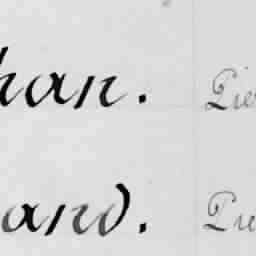 han. Pie
and. Pie